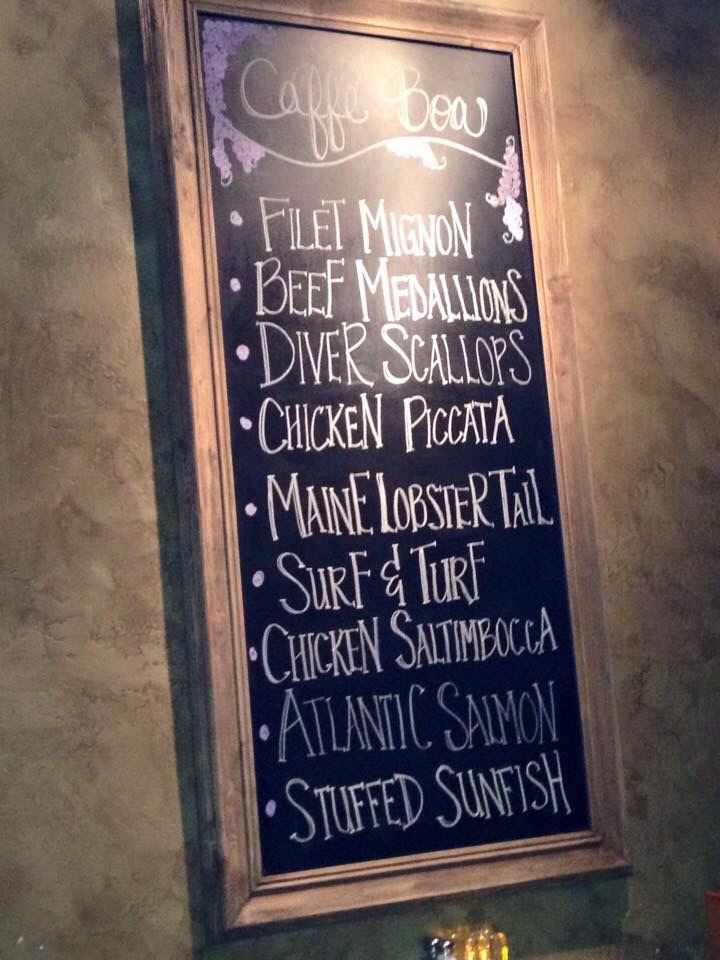 Caffé Boa
FILET MIGNON
BEEF MEDALLIONS
DIVER SCALLOPS
CHICKEN PICCATA
MAINE LOBSTER TAIL
SURF & TURF
CHICKEN SALTIMBOCCA
ATLANTIC SALMON
STUFFED SUNFISH